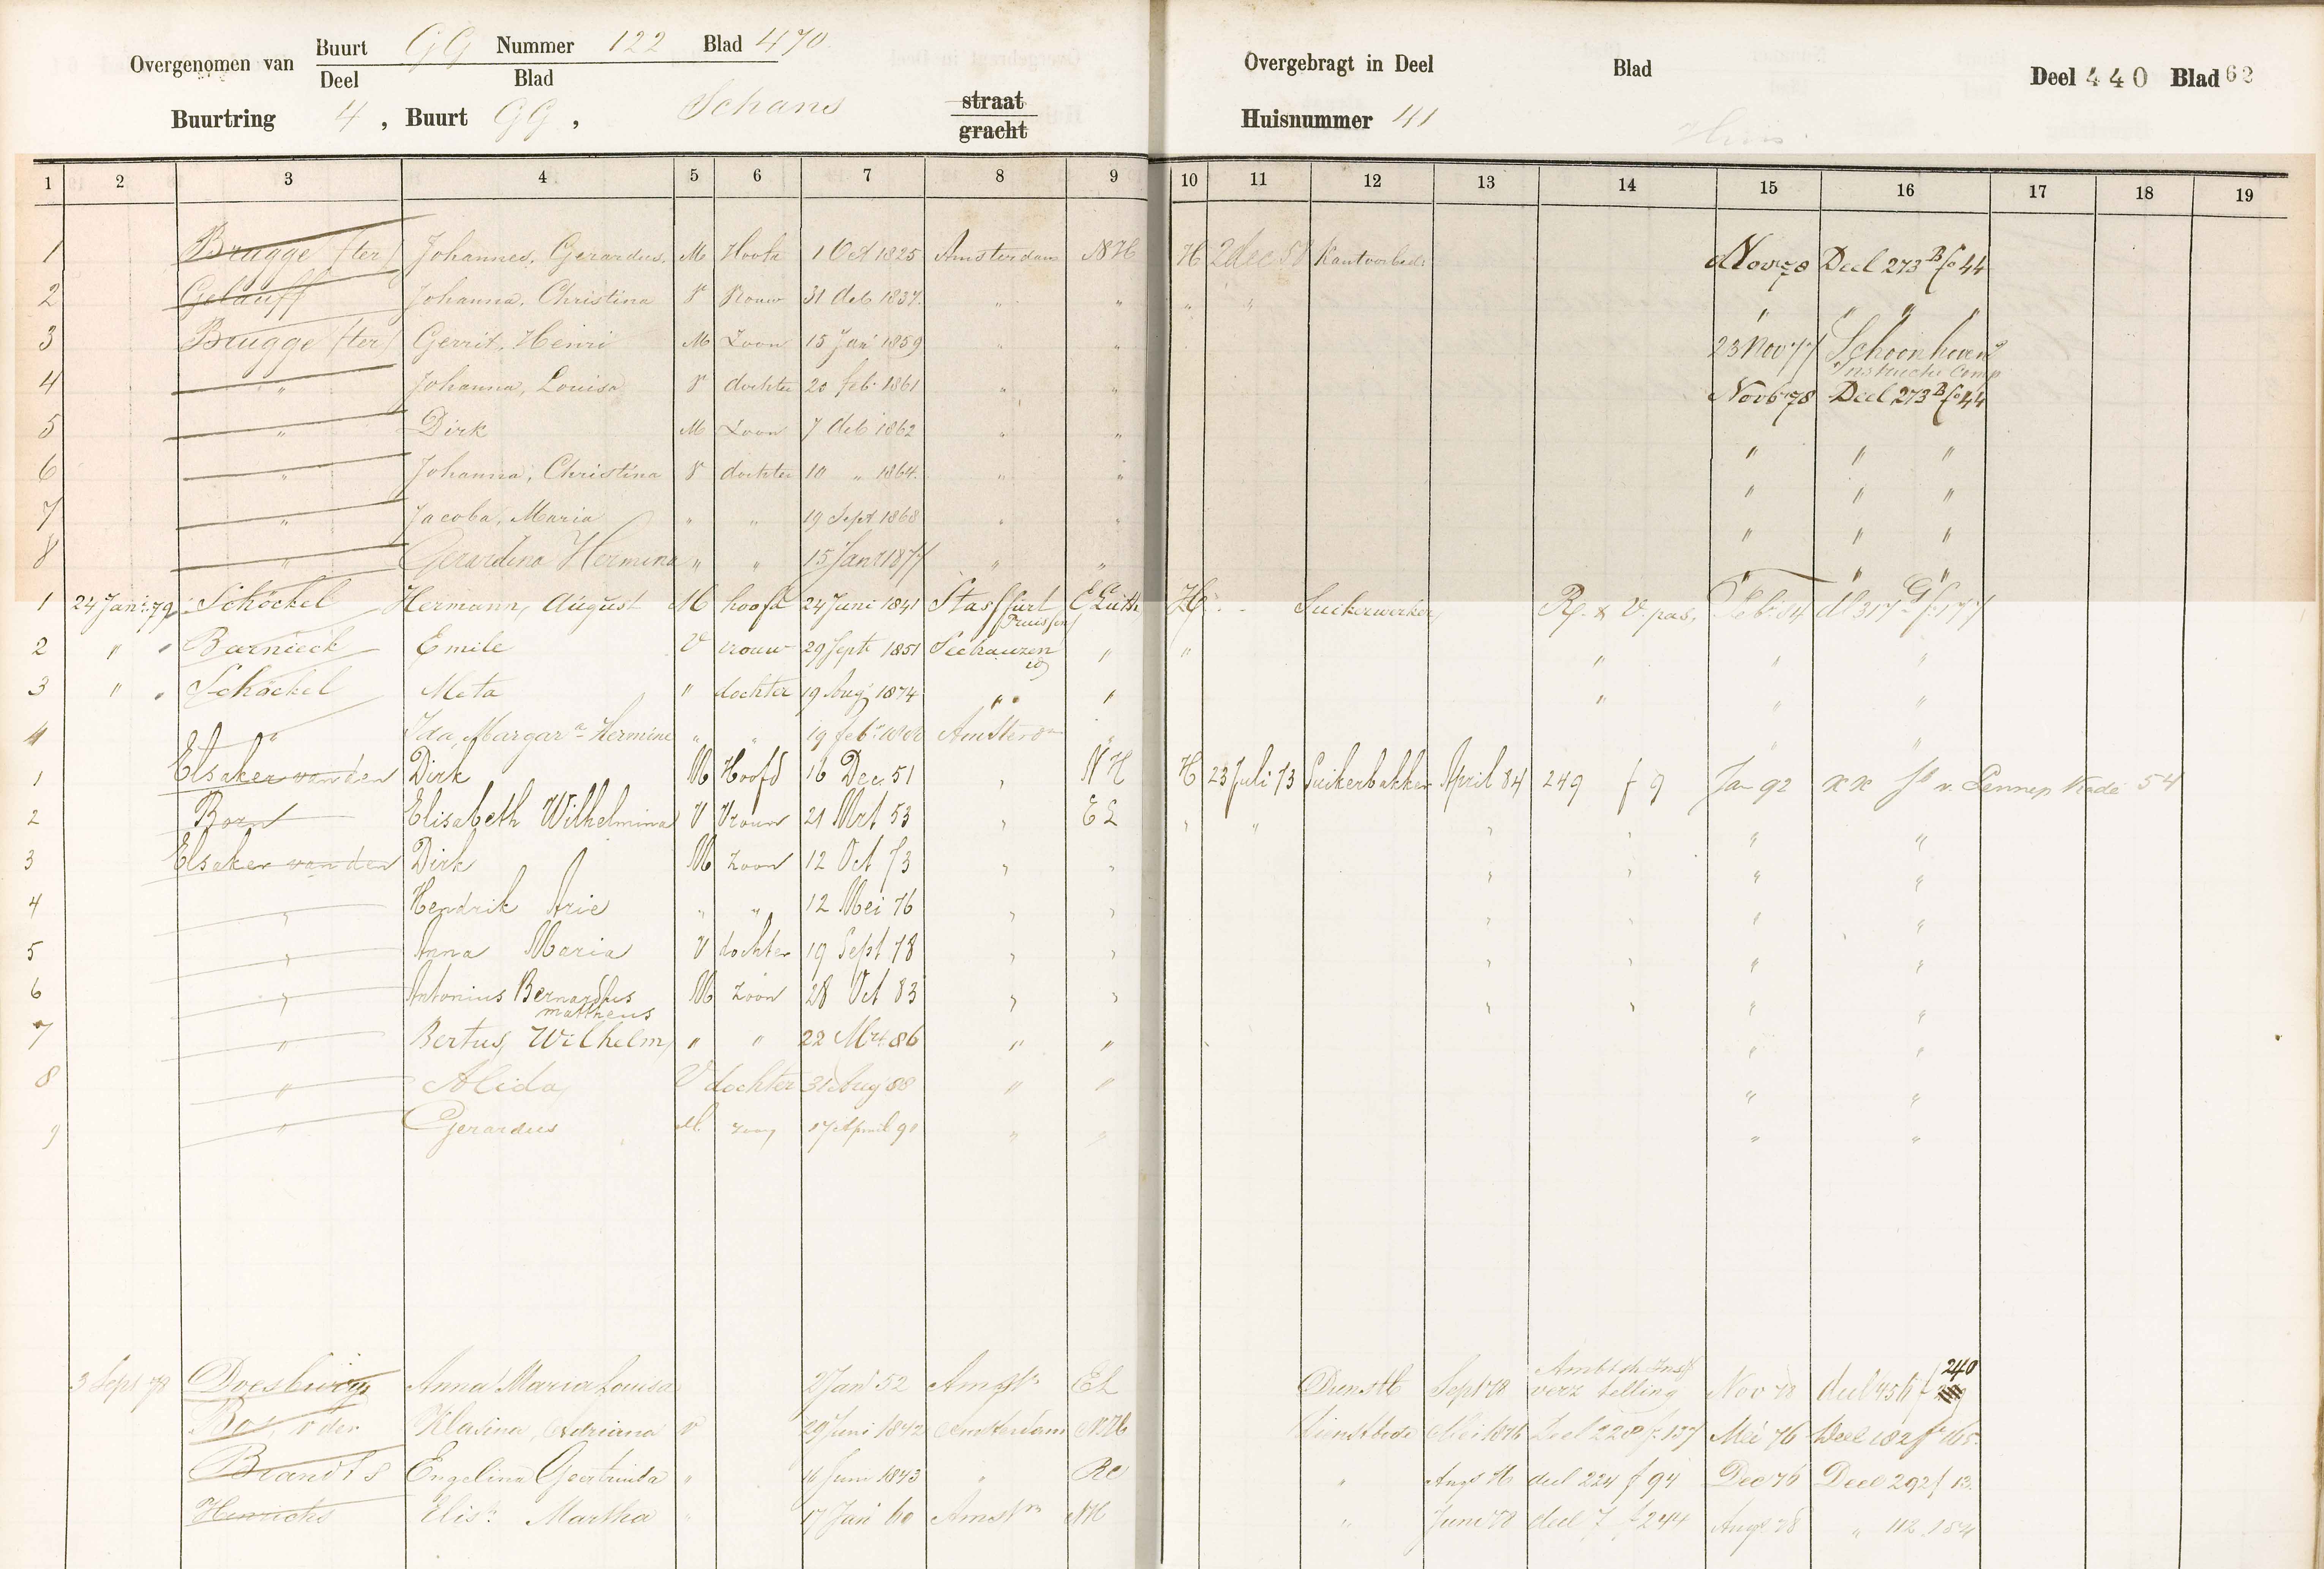 Overgenomen van Buurt GG Nummer 122 Blad 470
Deel Blad
Buurtring 4, Buurt GG, Schans straat gracht
Overgebragt in Deel Blad Deel 440 Blad 62
Huisnummer 41
1 2 3 4 5 6 7 8 9 10 11 12 13 14 15 16 17 18 19
1 Brugge (ter) Johannes, Gerardus. M Hoofd 1 Oct 1825 Amsterdam NH H 2 dec 58 Kantoorbed: Nov 78 Deel 273 B fo 44
2 Gelauff Johanna, Christina V Vrouw 31 Oct 1837. " " " " " " "
3 Brugge (ter) Gerrit, Henri M Zoon 15 Jan 1859 " " 23 Nov 77 Schoonhoven
Instructie Comp
4 " Johanna, Louisa V dochter 20 feb. 1861 " " Nov 78 Deel 273 B fo 44
5 " Dirk M Zoon 7 Oct 1862 " " " " "
6 " Johanna, Christina V dochter 10 " 1864. " " " " "
7 " Jacoba, Maria " " 19 Sept 1868 " " " " "
8 " Gerardina Hermina " " 15 Jan 1877 " " " " "
1 24 Jan: 79 Schöckel Hermann, August M hoofd 24 Juni 1841 Stassfurt E Luth H Suikerwerker R. & V. pas. Feb: 84 dl 317 G f. 177
Pruissen
2 " " Barnieck Emile V vrouw 29 Sept 1851 Seehauzen " " " " "
id
3 " " Schöckel Meta " dochter 19 Aug 1874 " " " " "
4 " Ida, Margar a Hermine " " 19 feb. Amsterdm " " "
1 Elsaker van den Dirk M Hoofd 16 Dec 51 " NH H 23 Juli 73 Suikerbakker April 84 249 f 9 Jan 92 xx Jb v. Lennep Kade 54
2 Born Elisabeth Wilhelmina V Vrouw 21 Mrt 53 " EL " " " " " "
3 Elsaker van den Dirk M Zoon 12 Oct 73 " " " " " "
4 " Hendrik Arie " " 12 Mei 76 " " " " " "
5 " Anna Maria V dochter 19 Sept 78 " " " " " "
6 " Antonius Bernardus M zoon 28 Oct 83 " " " " " "
mattheus
7 " Bertus, Wilhelm, " " 22 Mrt 86 " " " "
8 " Alida V dochter 31 Aug 88 " " " "
9 " Gerardus M. zoon 17 April 90 " " " "
3 Sept 78 Doesburg Anna Maria Louisa 2 Jan 52 Amstm EL Dienstb Sept 78 verz telling Nov 78 deel 456 f 240
Bos, v der Klasina, Adriana V 29 Juni 1842 Amsterdam NH dienstbode Mei 1876 Deel 220 f. 137 Mei 76 Deel 182 f 165.
Brandts Engelina Geertruida " 16 Juni 1843 " RC " Augs 76 deel 224 f 94 Dec 76 Deel 292 f 13.
Henrichs Elish Martha " 17 Jan 60 Amstm NH " Juni 78 deel 7 f 244 Augs 78 " 112. 154